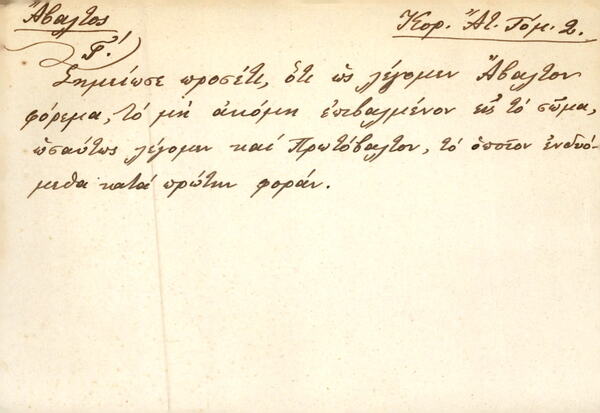 Ἄβαλτος
Κορ. Ἄτ. Τόμ. 2.
Γ!
Σημείωσε προσέτι, ὅτι ὡς λέγομεν Ἄβαλτον
φόρεμα, τό μή ἀκόμη ἐπιβαλμένον εἰς τό σῶμα,
ὡσαύτως λέγομεν καί Πρωτόβαλτον, τό ὁποῖον ἐνδυό-
μεθα κατά πρώτην φοράν.